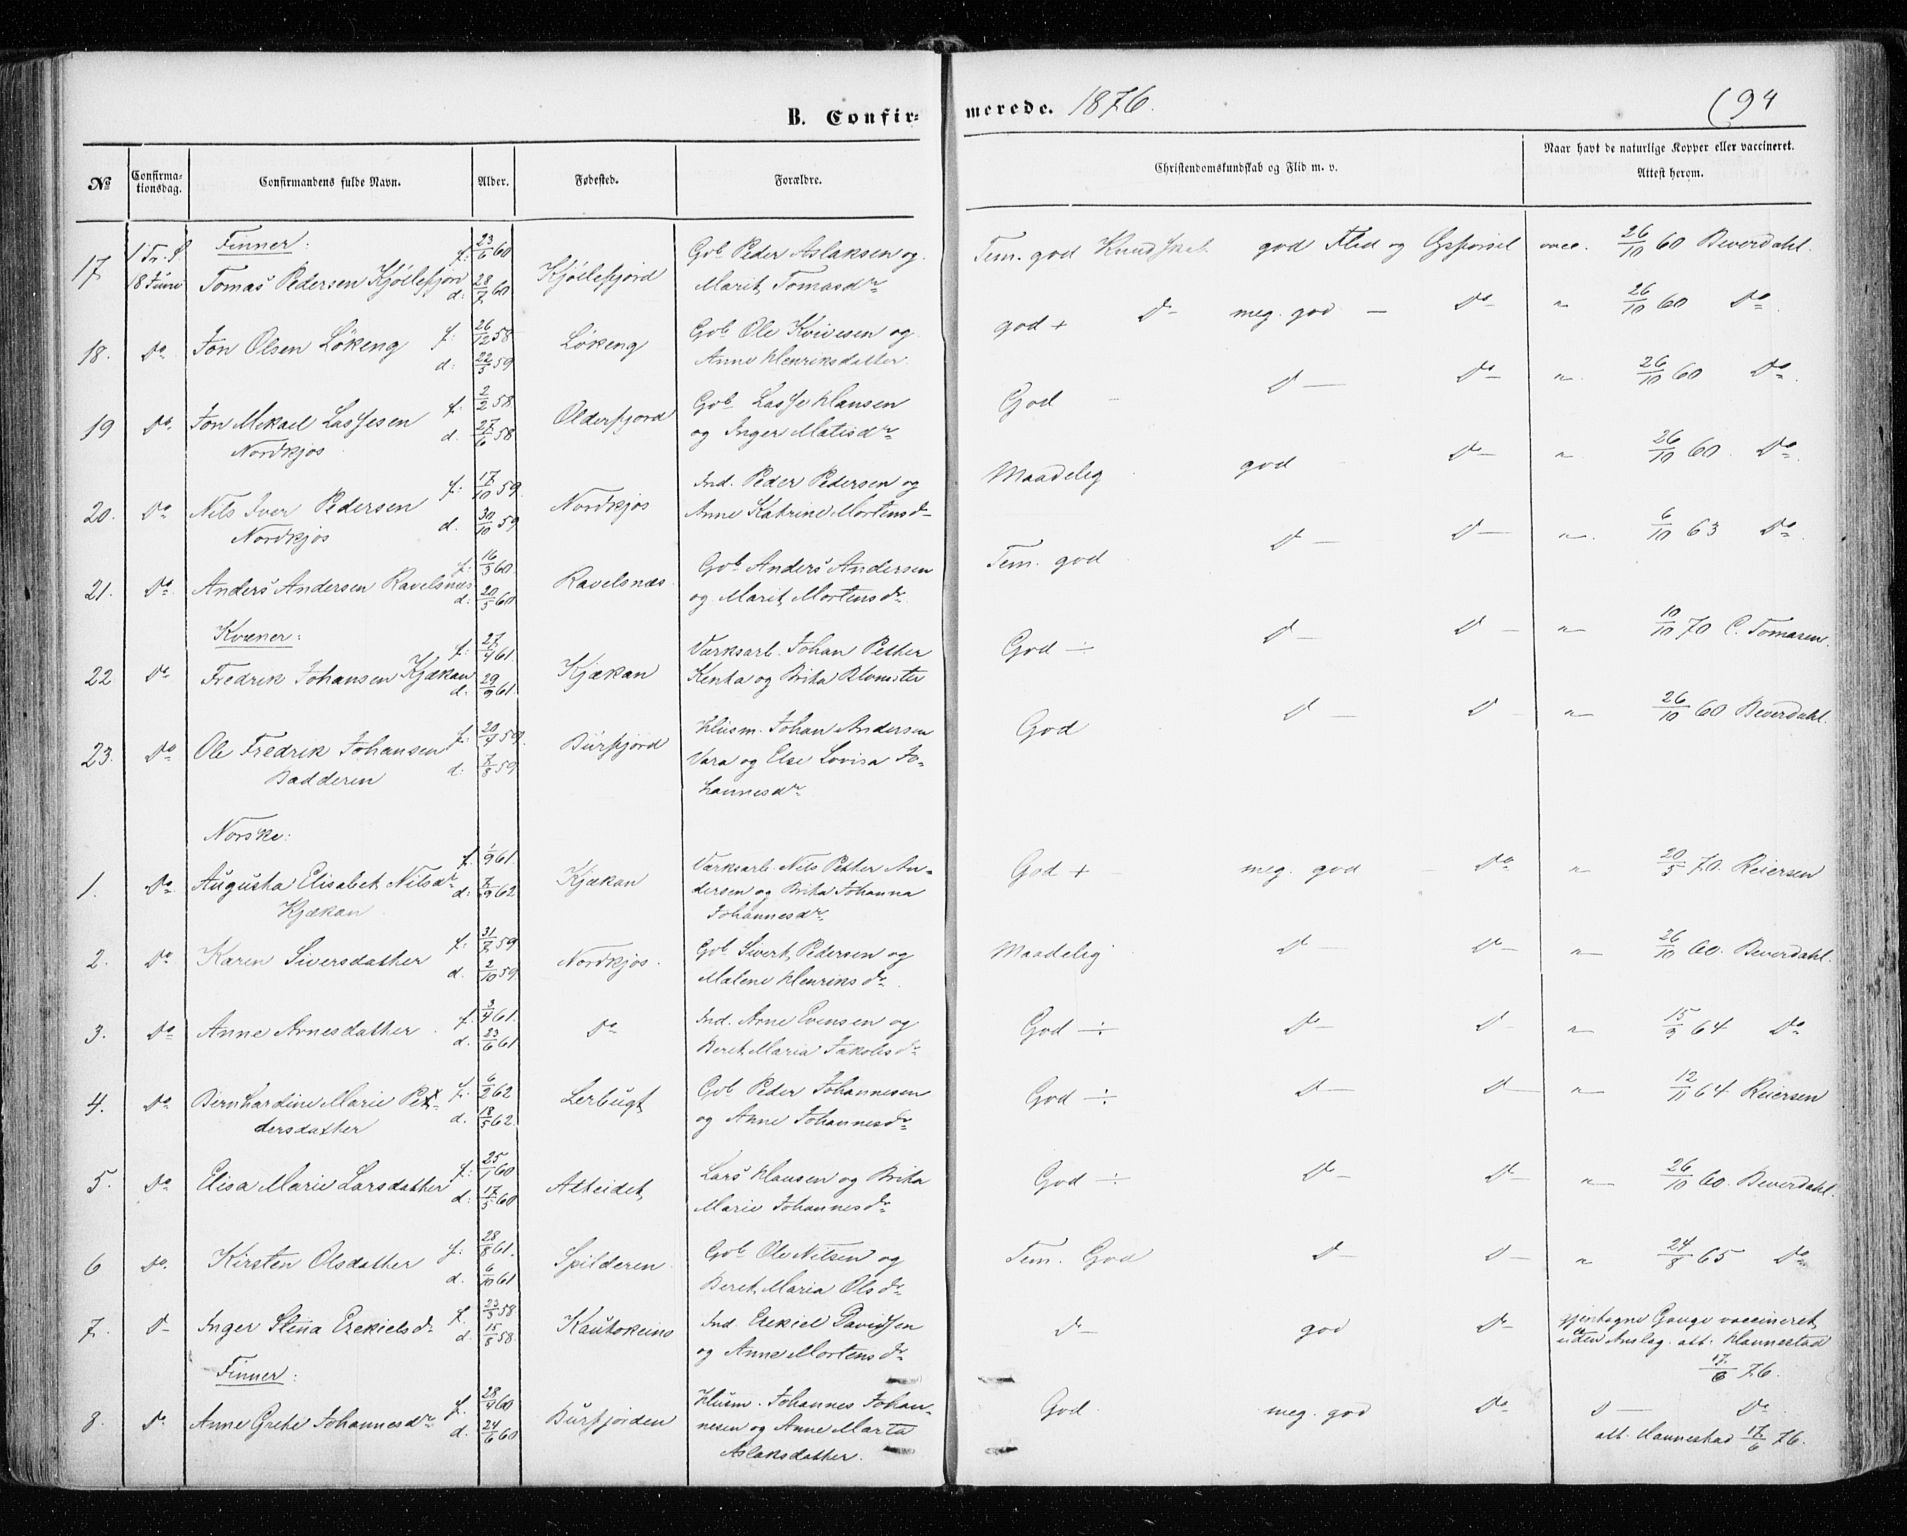 B. Confirmerede. 1876. 94
No Confirmationsdag. Confirmandens fulde Navn. Alder. Fødested. Forældre. Christendomskundskab og Flid m. v. Naar havt de naturlige Kopper eller vaccineret. Attest herom.
Finner:
17 1 Tr. S. 18 Juni Tomas Pedersen Kjøllefjord f. 23/6 60 d. 28/7 60 Kjøllefjord Gbr Peder Aslaksen og Tem. god Kundskab god Flid og Opførsel vacc. 26/10 60 Beverdahl.
Marit Tomasdr
18. Do Jon Olsen Løkeng f. 26/12 58 d. 22/5 59 Løkeng Gbr Ole Kvivesen og god + Do meg. god — Do " 26/10 60 Do
Anne Henriksdatter.
19 Do Jon Mikael Lassesen f. 2/2 58 d. 27/6 58 Olderfjord Gbr Lasse Hansen God Do Do " 26/10 60 Do
Nordkjos og Inger Matisdr
20. Do Nils Iver Pedersen f. 17/10 59. d. 30/10 59 Nordkjos Ind. Peder Pedersen og Maadelig god Do " 26/10 60. Do
Nordkjos Anne Katrine Mortensd
21. Do Anders Andersen Ravelsnæs f. 16/3 60. d. 20/5 60 Ravelsnæs Gbr Anders Andersen Tem. god Do Do " 6/10 63 Do
og Marit Mortensdr.
Kvæner:
22 Do Fredrik Johansen Kjækan f. 27/4 61 d. 29/9 61 Kjækan Værksarb. Johan Pether God ÷ Do Do " 10/10 70 C. Tomasen.
Kenta og Brita Blomster
23. Do Ole Fredrik Johansen f. 20/4 59. d. 7/8 59. Burfjord Husm. Johan Andersen God Do Do " 26/10 60 Beverdahl.
Badderen Vara og Else Lovisa Jo-
hannesdr
Norske:
1. Do Augusta Elisabet Nilsdr f. 1/9 61 d. 7/9 62 Kjækan Værksarb. Nils Pether An- God + meg. god Do " 20/5 70. Reiersen
Kjækan dersen og Brita Johanna
Johannesdr
2. Do Karen Siversdatter f. 31/7 59 d. 2/10 59 Nordkjos. Gbr Sivert Pedersen og Maadelig Do Do " 26/10 60. Beverdahl.
Malene Henriksdr.
3. Do Anne Arnesdatter. f. 3/4 61. d. 23/6 61 Do Ind. Arne Evensen og God ÷ Do Do " 15/9 64 Do
Beret Maria Jakobsdr
4. Do Bernhardine Marie Pe- f. 6/2 62 d. 18/5 62. Lerbugt Gbr Peder Johannesen God ÷ Do Do " 12/11 64 Reiersen
dersdatter og Anne Johannesdr
5. Do Elisa Marie Larsdatter f. 25/1 60 d. 17/5 60 Alteidet Lars Hansen og Brita God ÷ Do Do " 26/10 60. Beverdahl.
Marie Johannesdr
6 Do. Kirsten Olsdatter f. 28/8 61. d. 6/10 61 Spilderen Gbr Ole Nilsen og Tem. God Do Do " 24/8 65 Do
Beret Maria Olsdr
7. Do Inger Stina Ezekielsdr f. 23/3 58. d. 15/8 58. Kautokeino Ind. Ezekiel Davidsen Do god Do gjentagne Gange vaccineret
og Anne Mortensdr uden Anslag. att. Hannestad
17/6 76.
Finner:
8. Do Anne Grete Johannesdr f. 28/4 60 d. 24/6 60 Burfjorden Husm. Johannes Johan- God. meg. god Do Do Do
nesen og Anne Marta att. Hannestad 17/6 76.
Aslaksdatter.